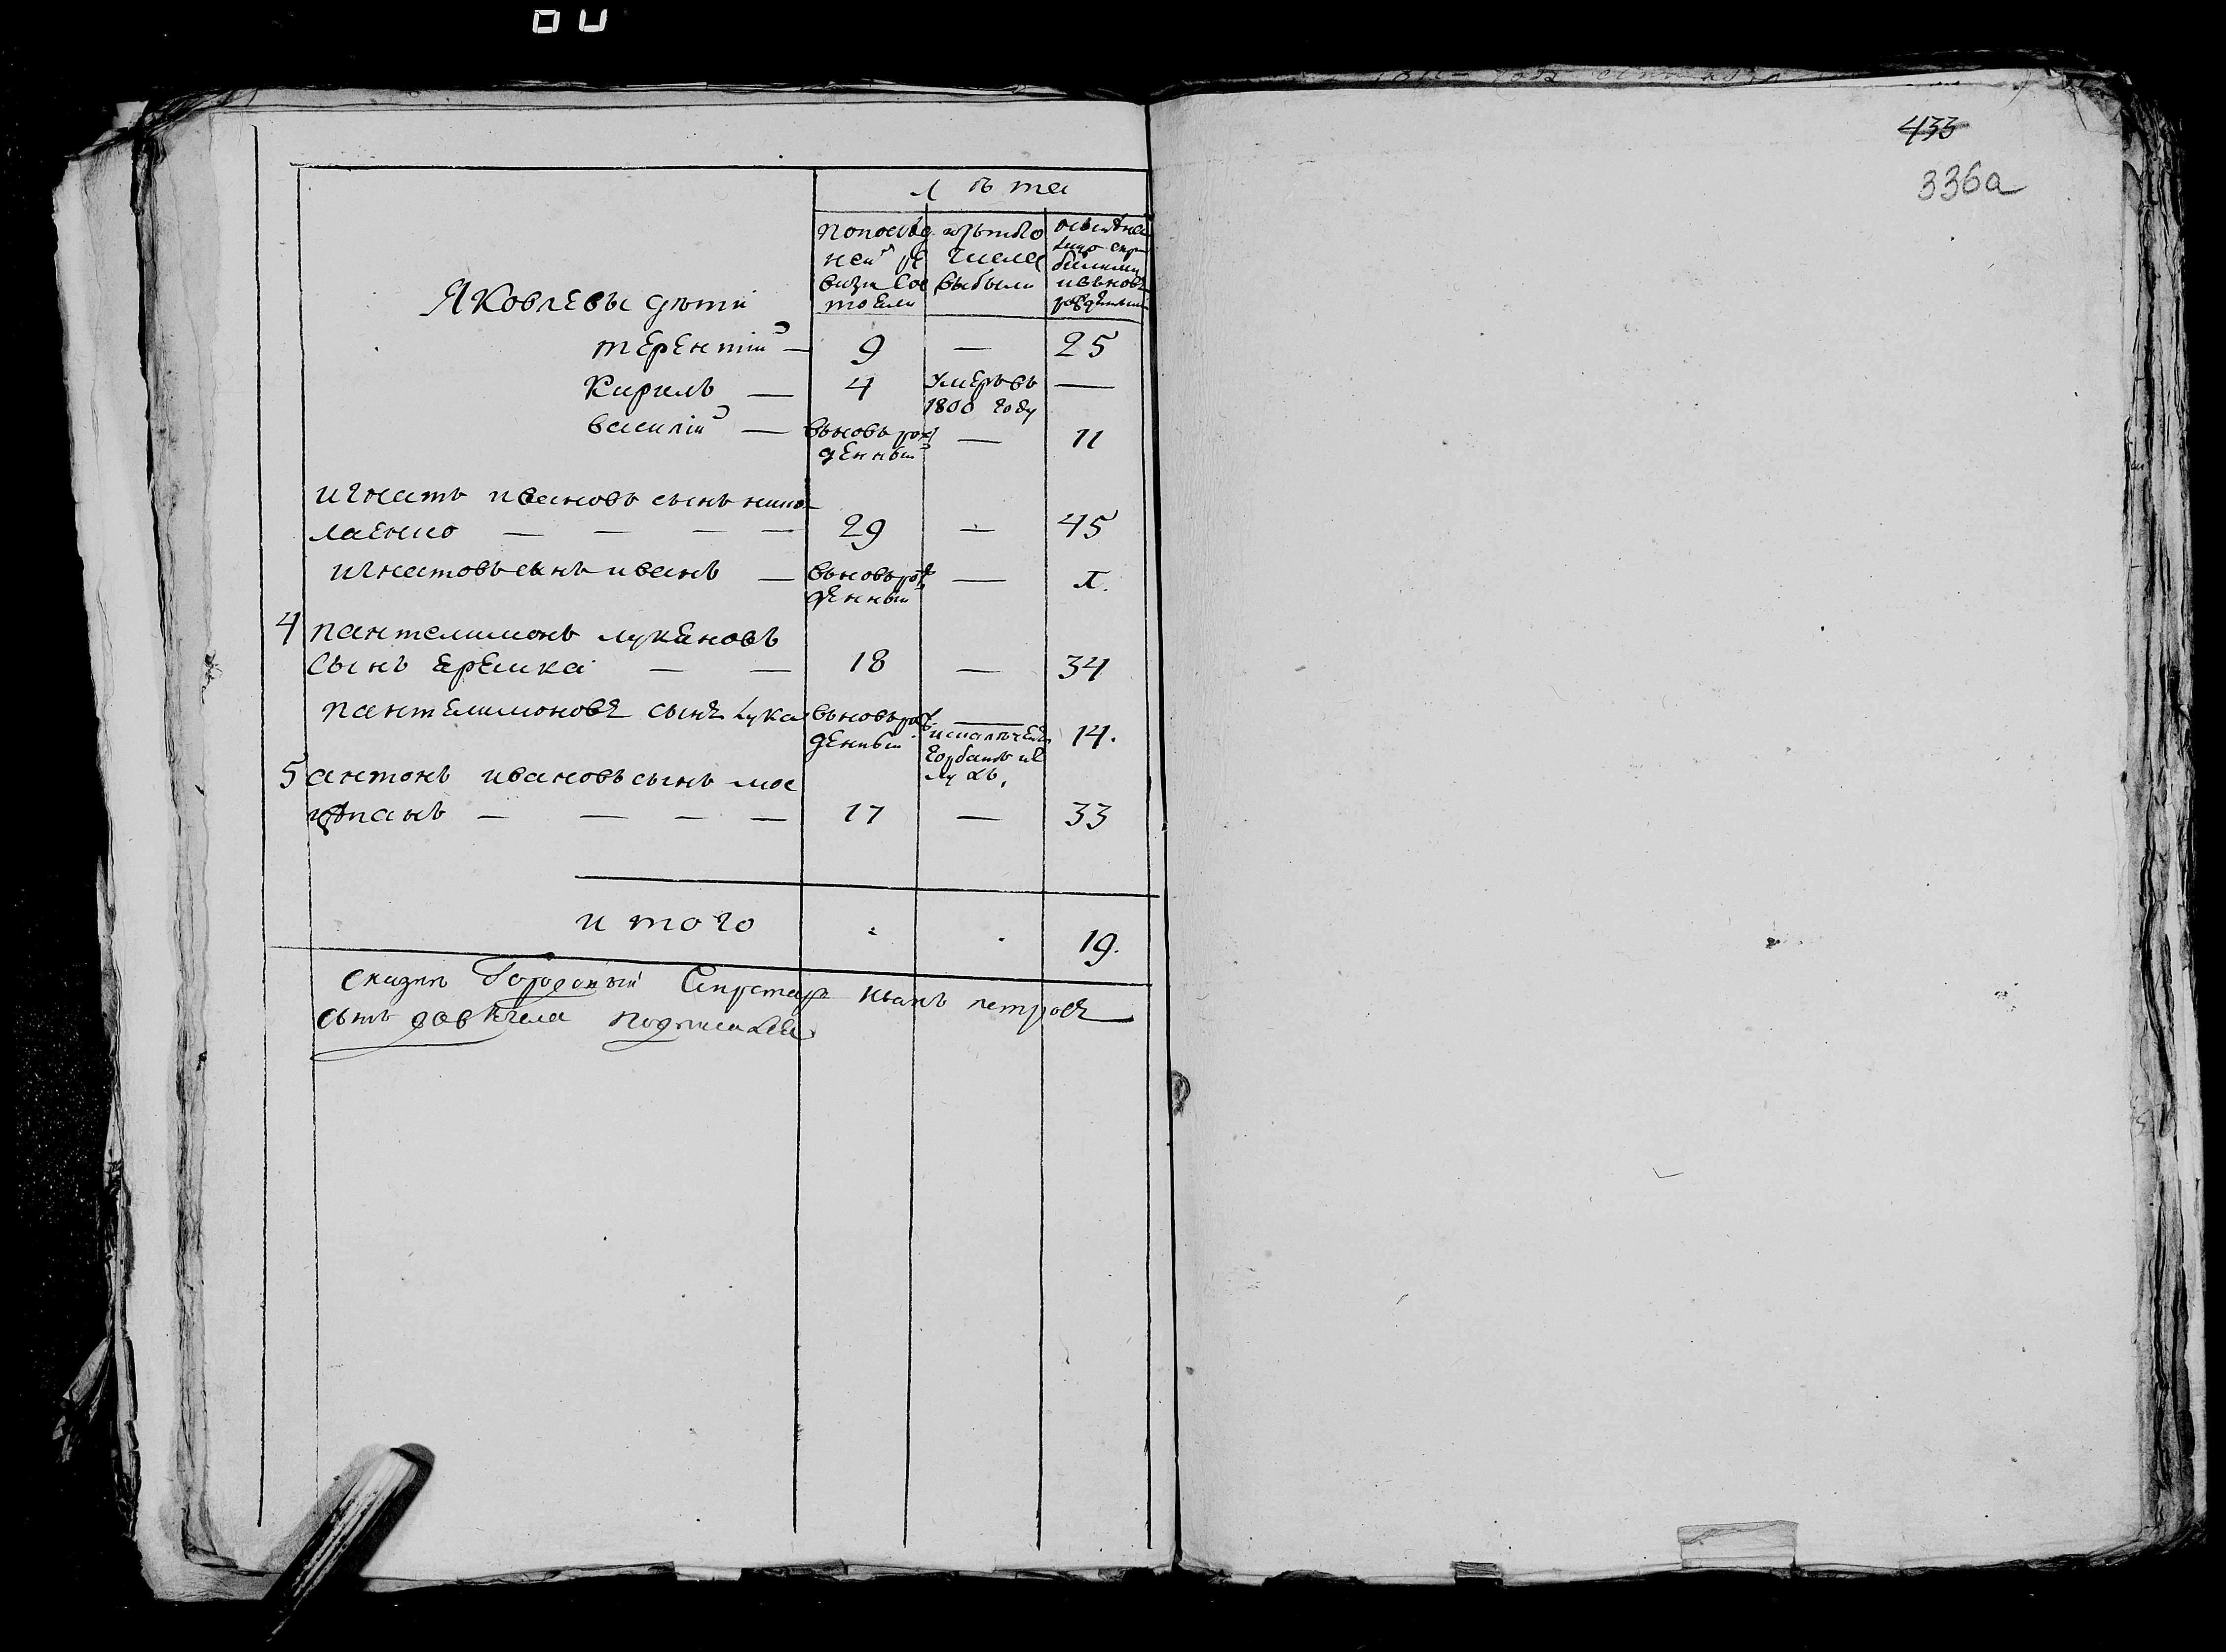 433
336а
Лѣта
Попослѣд
ней ре
визи сос
тояли
изътого
числа
выбыли
Яковлевы дѣти
терентий — 9 — 25
Кирилъ — 4 умеръ въ —
1800 году
василий — вьновь рож — 11
денный
игнатъ ивановъ сынъ нико
лаенко — — — — 29 — 45
игнатовъ сынъ иванъ — вьновь рож —
денный
4 пантелимонъ лукяновъ
сынъ еремка — — 18 — 34
пантелимоновъ сынъ лука вьновь рож — 14.
денный
горбатъ и
5 антонъ ивановъ сынъ мос
цѣпанъ — — — — 17 — 33
итого 19.
Сказке Городовый Секретарь иванъ петровъ
сынъ подписался